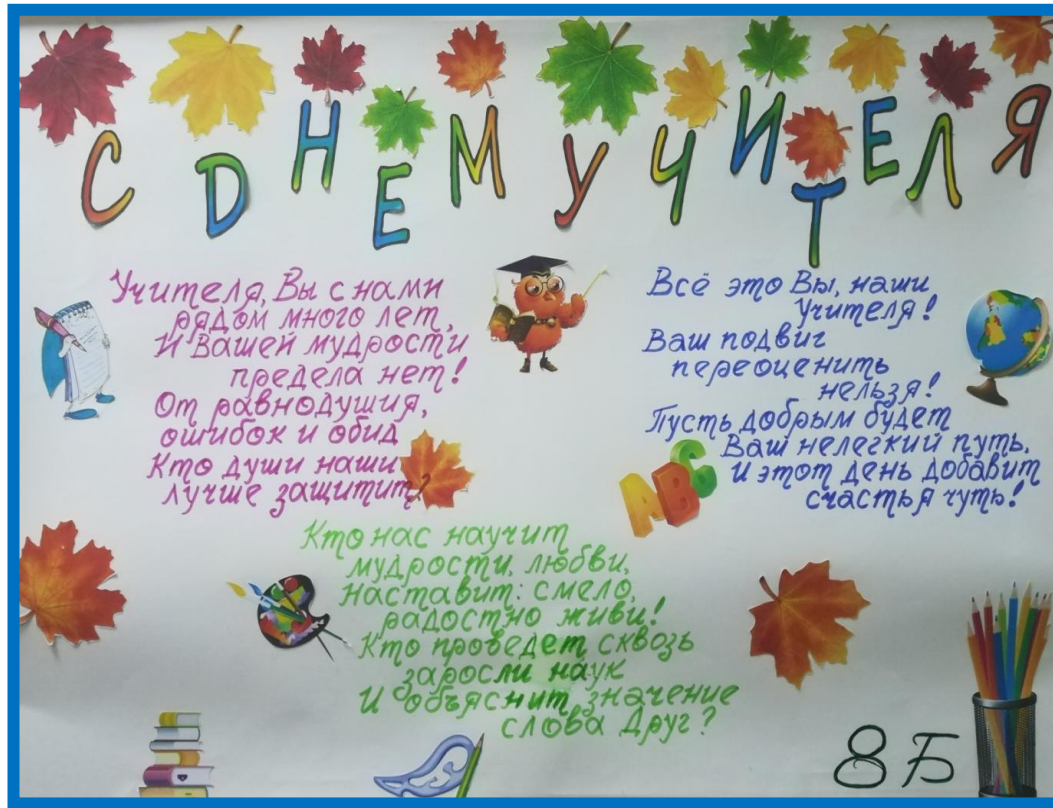 С ДНЕМ УЧИТЕЛЯ
Учителя, Вы с нами
рядом много лет,
И Вашей мудрости
предела нет!
От равнодушия,
ошибок и обид
Кто души наши
лучше защитит?
Кто нас научит
мудрости, любви,
Наставит: смело,
радостно живи!
Кто проведет сквозь
заросли наук
И объяснит значение
слова Друг?
Всё это Вы, наши
Учителя!
Ваш подвиг
переоценить
нельзя!
Пусть добрым будет
Ваш нелегкий путь,
И этот день добавит
счастья чуть!
АВС
8 Б